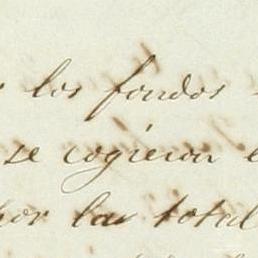 los fondos
se cogieron
por las total